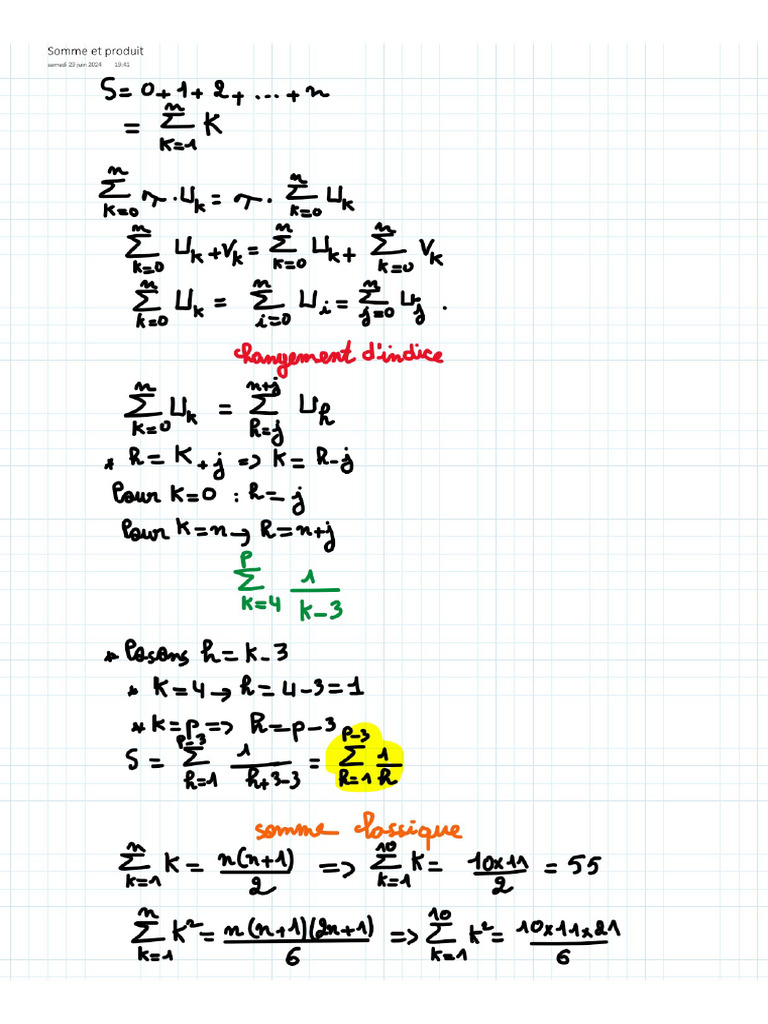 Somme et produit
samedi 29 juin 2024 19:41
S = 0 + 1 + 2 + ... + n
= \sum_{K=1}^{n} K
\sum_{k=0}^{n} λ · U_k = λ · \sum_{k=0}^{n} U_k
\sum_{k=0}^{n} U_k + V_k = \sum_{k=0}^{n} U_k + \sum_{k=0}^{n} V_k
\sum_{k=0}^{n} U_k = \sum_{i=0}^{n} U_i = \sum_{j=0}^{n} U_j .
changement d'indice
\sum_{k=0}^{n} U_k = \sum_{h=j}^{n+j} U_h
* h = K + j => K = h - j
Pour K = 0 : h = j
Pour K = n → h = n + j
\sum_{k=4}^{p} \frac{1}{k-3}
* Posons h = k - 3
* K = 4 → h = 4 - 3 = 1
* K = p => h = p - 3
S = \sum_{h=1}^{p-3} \frac{1}{h+3-3} = \sum_{h=1}^{p-3} \frac{1}{h}
somme classique
\sum_{k=1}^{n} K = \frac{n(n+1)}{2} => \sum_{k=1}^{10} K = \frac{10×11}{2} = 55
\sum_{k=1}^{n} K² = \frac{n(n+1)(2n+1)}{6} => \sum_{k=1}^{10} k² = \frac{10×11×21}{6}